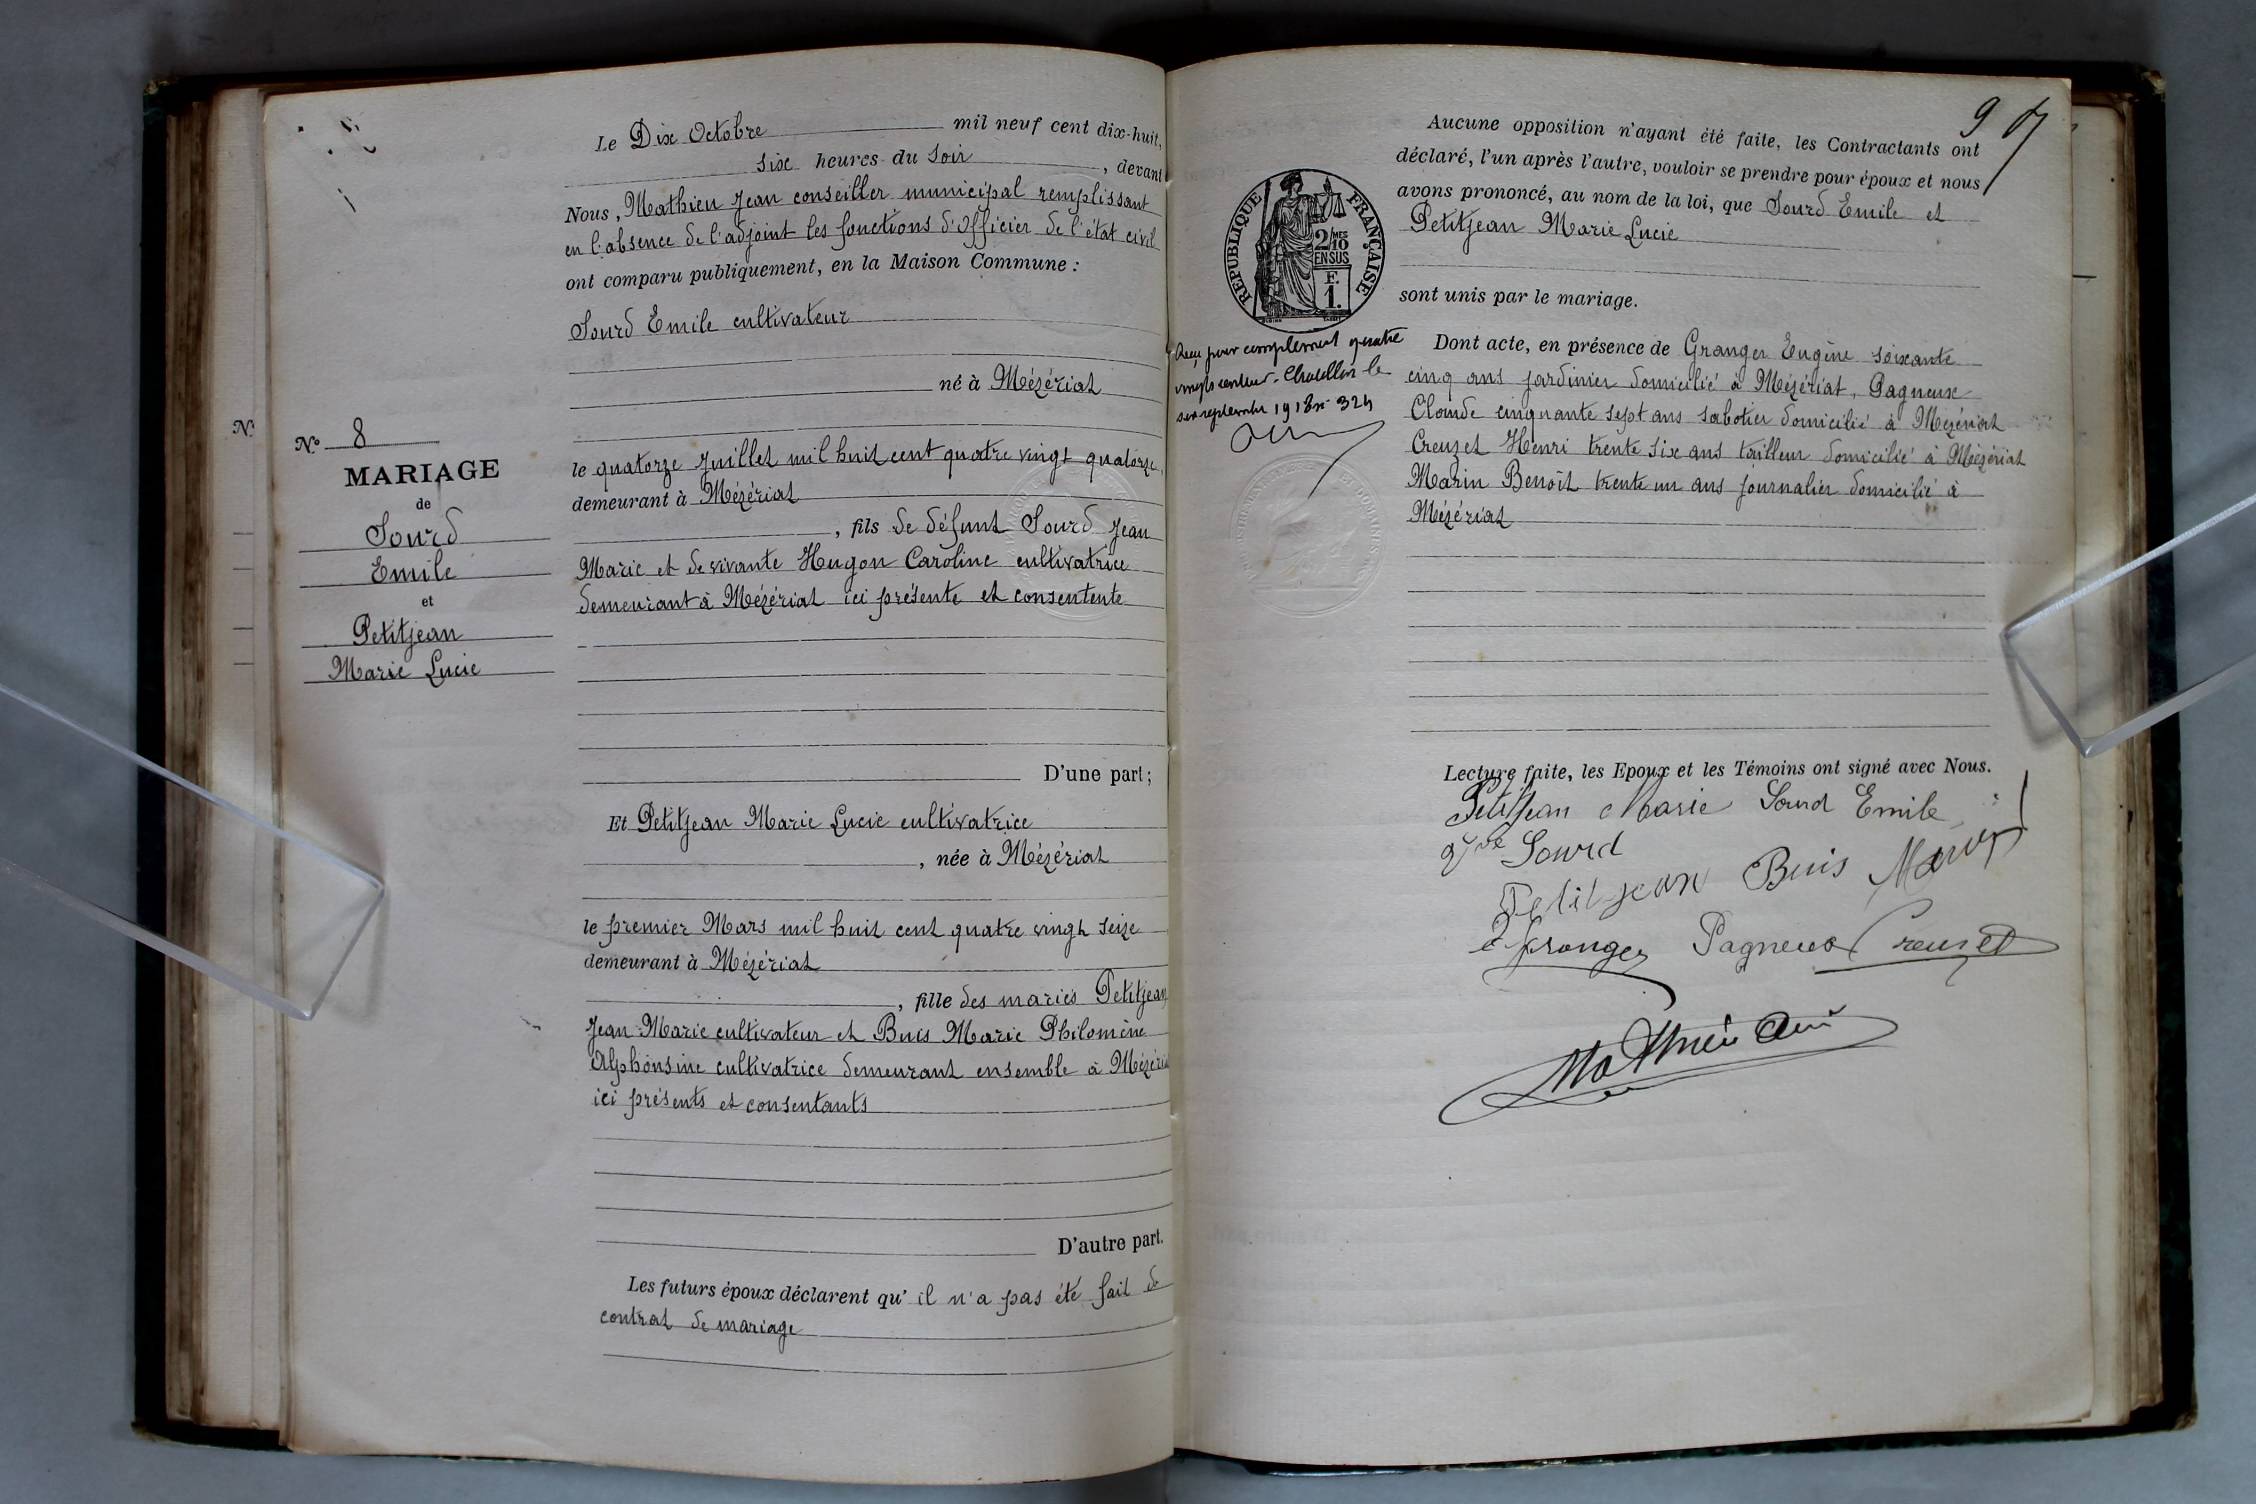 Le Dix Octobre mil neuf cent dix-huit,
six heures du soir, devant
Nous, Mathieu Jean conseiller municipal remplissant
en l'absence de l'adjoint les fonctions d'Officier de l'état civil
ont comparu publiquement, en la Maison Commune :
Sourd Emile cultivateur
né à Mézériat
le quatorze Juillet mil huit cent quatre vingt quatorze,
demeurant à Mézériat
, fils de défunt Sourd Jean
Marie et de vivante Hugon Caroline cultivatrice
demeurant à Mézériat ici présente et consentente
D'une part ;
Et Petitjean Marie Lucie cultivatrice
, née à Mézériat
le premier Mars mil huit cent quatre vingt seize
demeurant à Mézériat
, fille des mariés Petitjean
Jean Marie cultivateur et Buis Marie Philomène
Alphonsine cultivatrice demeurant ensemble à Mézériat
ici présents et consentants
D'autre part.
Les futurs époux déclarent qu'il n'a pas été fait de
contrat de mariage
N°
N° 8
MARIAGE
de
Sourd
Emile
et
Petitjean
Marie Lucie
9
Aucune opposition n'ayant été faite, les Contractants ont
déclaré, l'un après l'autre, vouloir se prendre pour époux et nous
avons prononcé, au nom de la loi, que Sourd Emile et
Petitjean Marie Lucie
sont unis par le mariage.
RÉPUBLIQUE FRANÇAISE
2/MES
10
EN SUS
F.
1.
Reçu pour complément quatre
vingts centimes. Chatillon le
six septembre 1918 n° 324
Dont acte, en présence de Granger Eugène soixante
cinq ans jardinier domicilié à Mézériat, Pagneux
Claude cinquante sept ans sabotier domicilié à Mézériat
Creuzet Henri trente six ans tailleur domicilié à Mézériat
Marin Benoît trente un ans journalier domicilié à
Mézériat
Lecture faite, les Epoux et les Témoins ont signé avec Nous.
Petitjean Marie Sourd Emile
Vve Sourd
Petitjean Buis Marin
E Granger Pagneux Creuzet
Mathieu